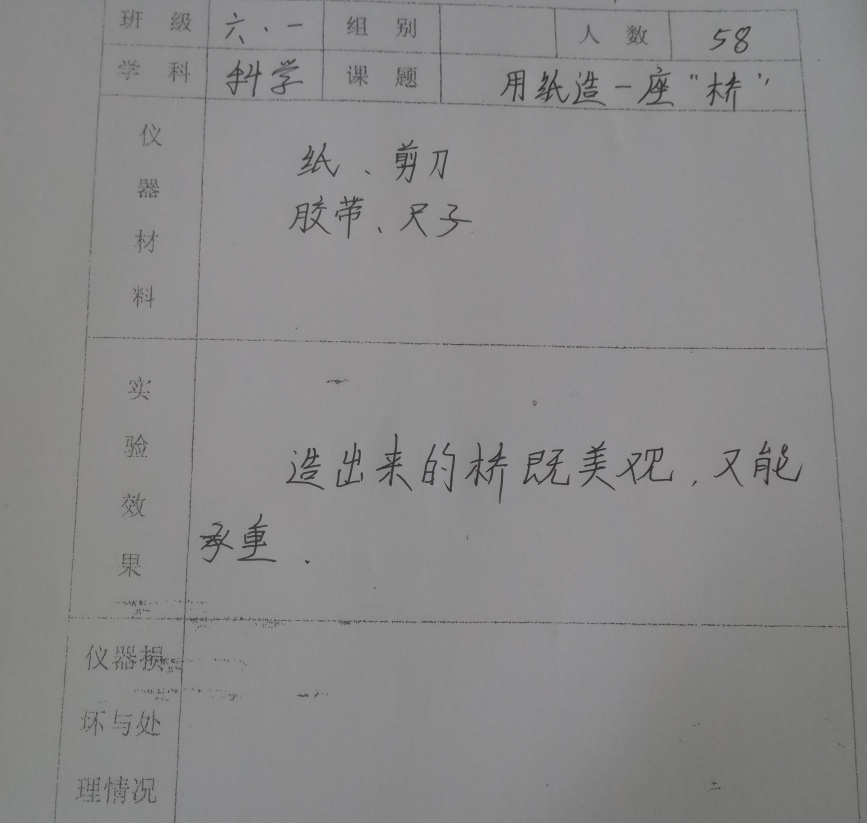 班级 六.一 组别 人数 58
学科 科学 课题 用纸造一座“桥”
仪器材料
纸、剪刀
胶带、尺子
实验效果
造出来的桥既美观，又能
承重.
仪器损
坏与处
理情况